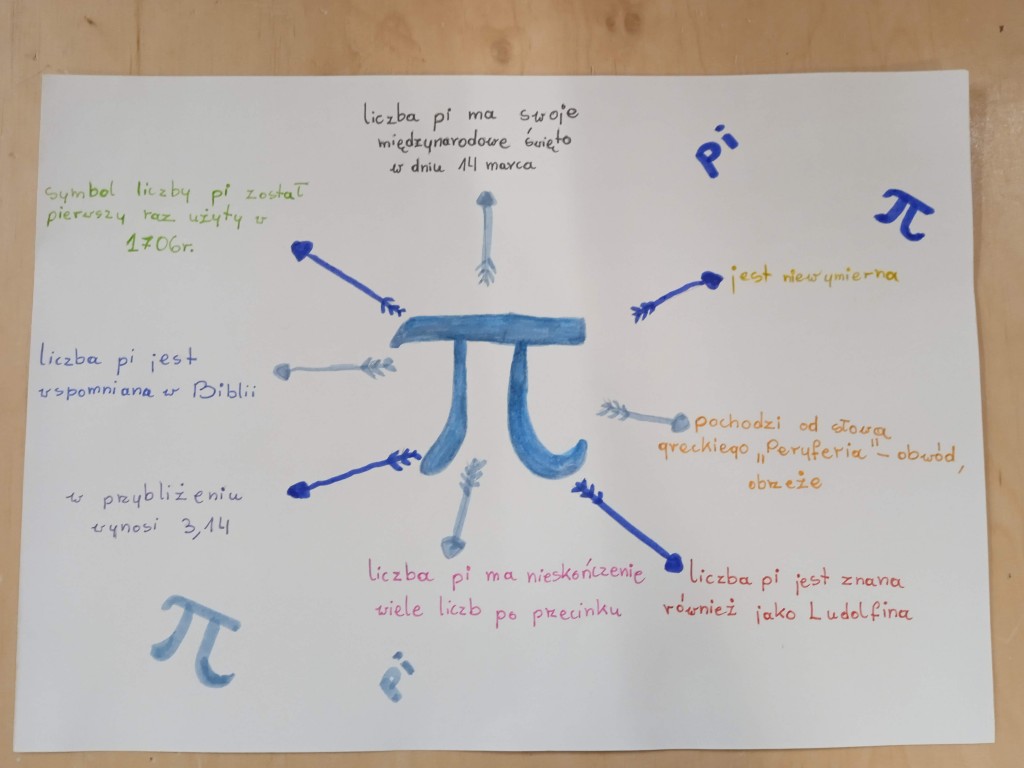 liczba pi ma swoje
międzynarodowe święto
w dniu 14 marca
pi
π
symbol liczby pi został
pierwszy raz użyty w
1706r.
jest niewymierna
π
liczba pi jest
wspomniana w Biblii
pochodzi od słowa
greckiego „Peryferia" – obwód,
obrzeże
w przybliżeniu
wynosi 3,14
liczba pi ma nieskończenie
wiele liczb po przecinku
liczba pi jest znana
również jako Ludolfina
π
pi